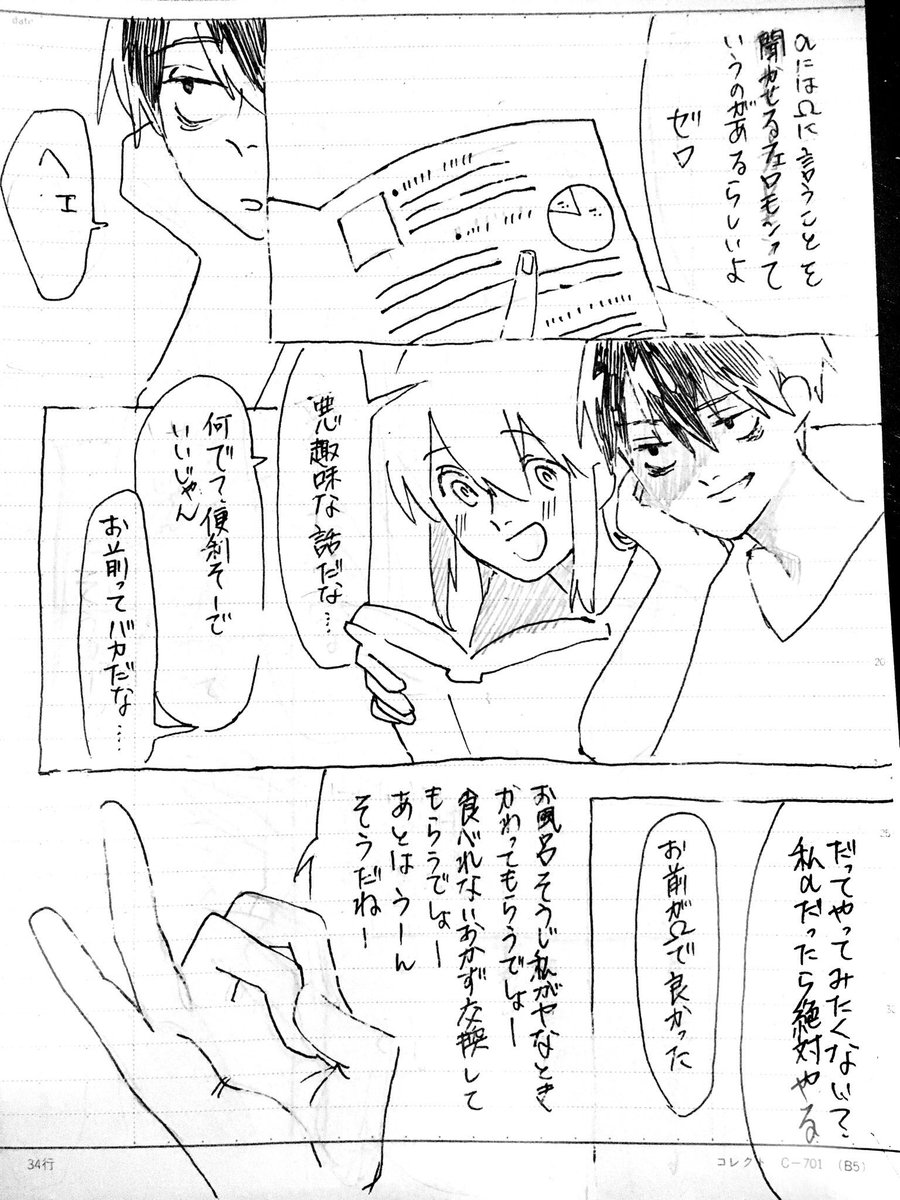 αにはΩに言うことを
聞かせるフェロモンって
いうのがあるらしいよ
ゼロ
へェ
悪趣味な話だな…
何で?便利そーで
いいじゃん
お前ってバカだな…
だってやってみたくない?
私αだったら絶対やる
お前がΩで良かった
お風呂そうじ私がヤなとき
かわってもらうでしょー
食べれないおかず交換して
もらうでしょー
あとはうーん
そうだねー
date
20
25
30
34行
コレクト C-701 (B5)